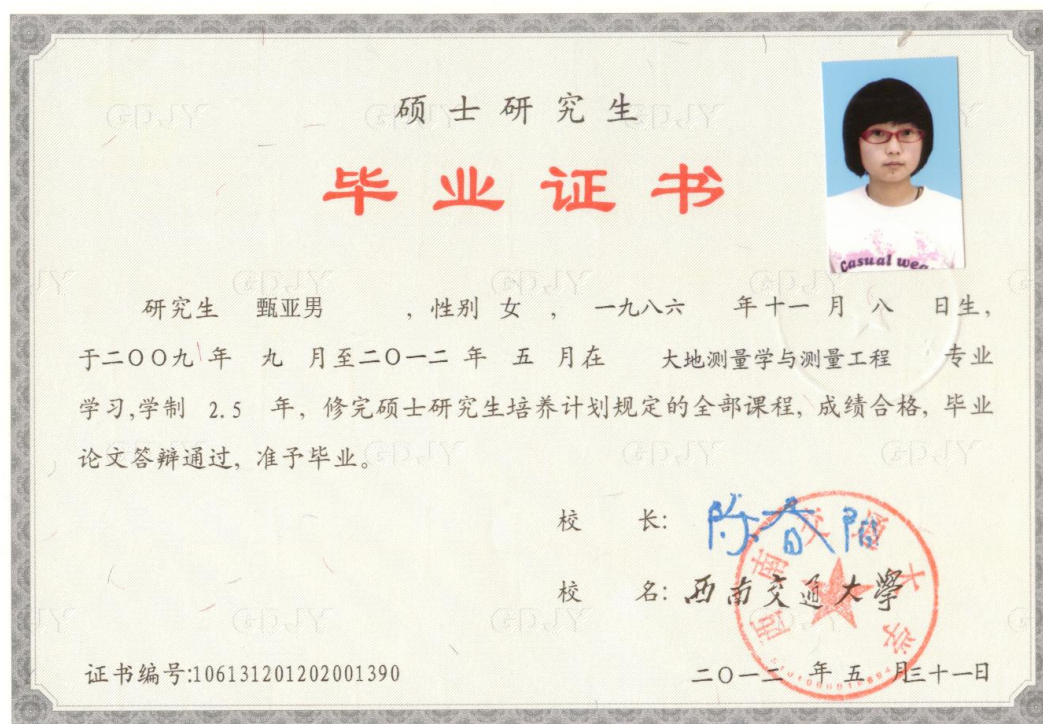 硕士研究生
毕业证书
Casual wea
研究生 甄亚男 , 性别 女 , 一九八六 年十一 月 八 日生,
于二〇〇九 年 九 月至二〇一二 年 五 月在 大地测量学与测量工程 专业
学习,学制 2.5 年, 修完硕士研究生培养计划规定的全部课程, 成绩合格, 毕业
论文答辩通过, 准予毕业。
校 长: 陈春阳
校 名: 西南交通大學
西南交通大学
证书编号:106131201202001390
二〇一二 年 五 月三十一日
GDJY